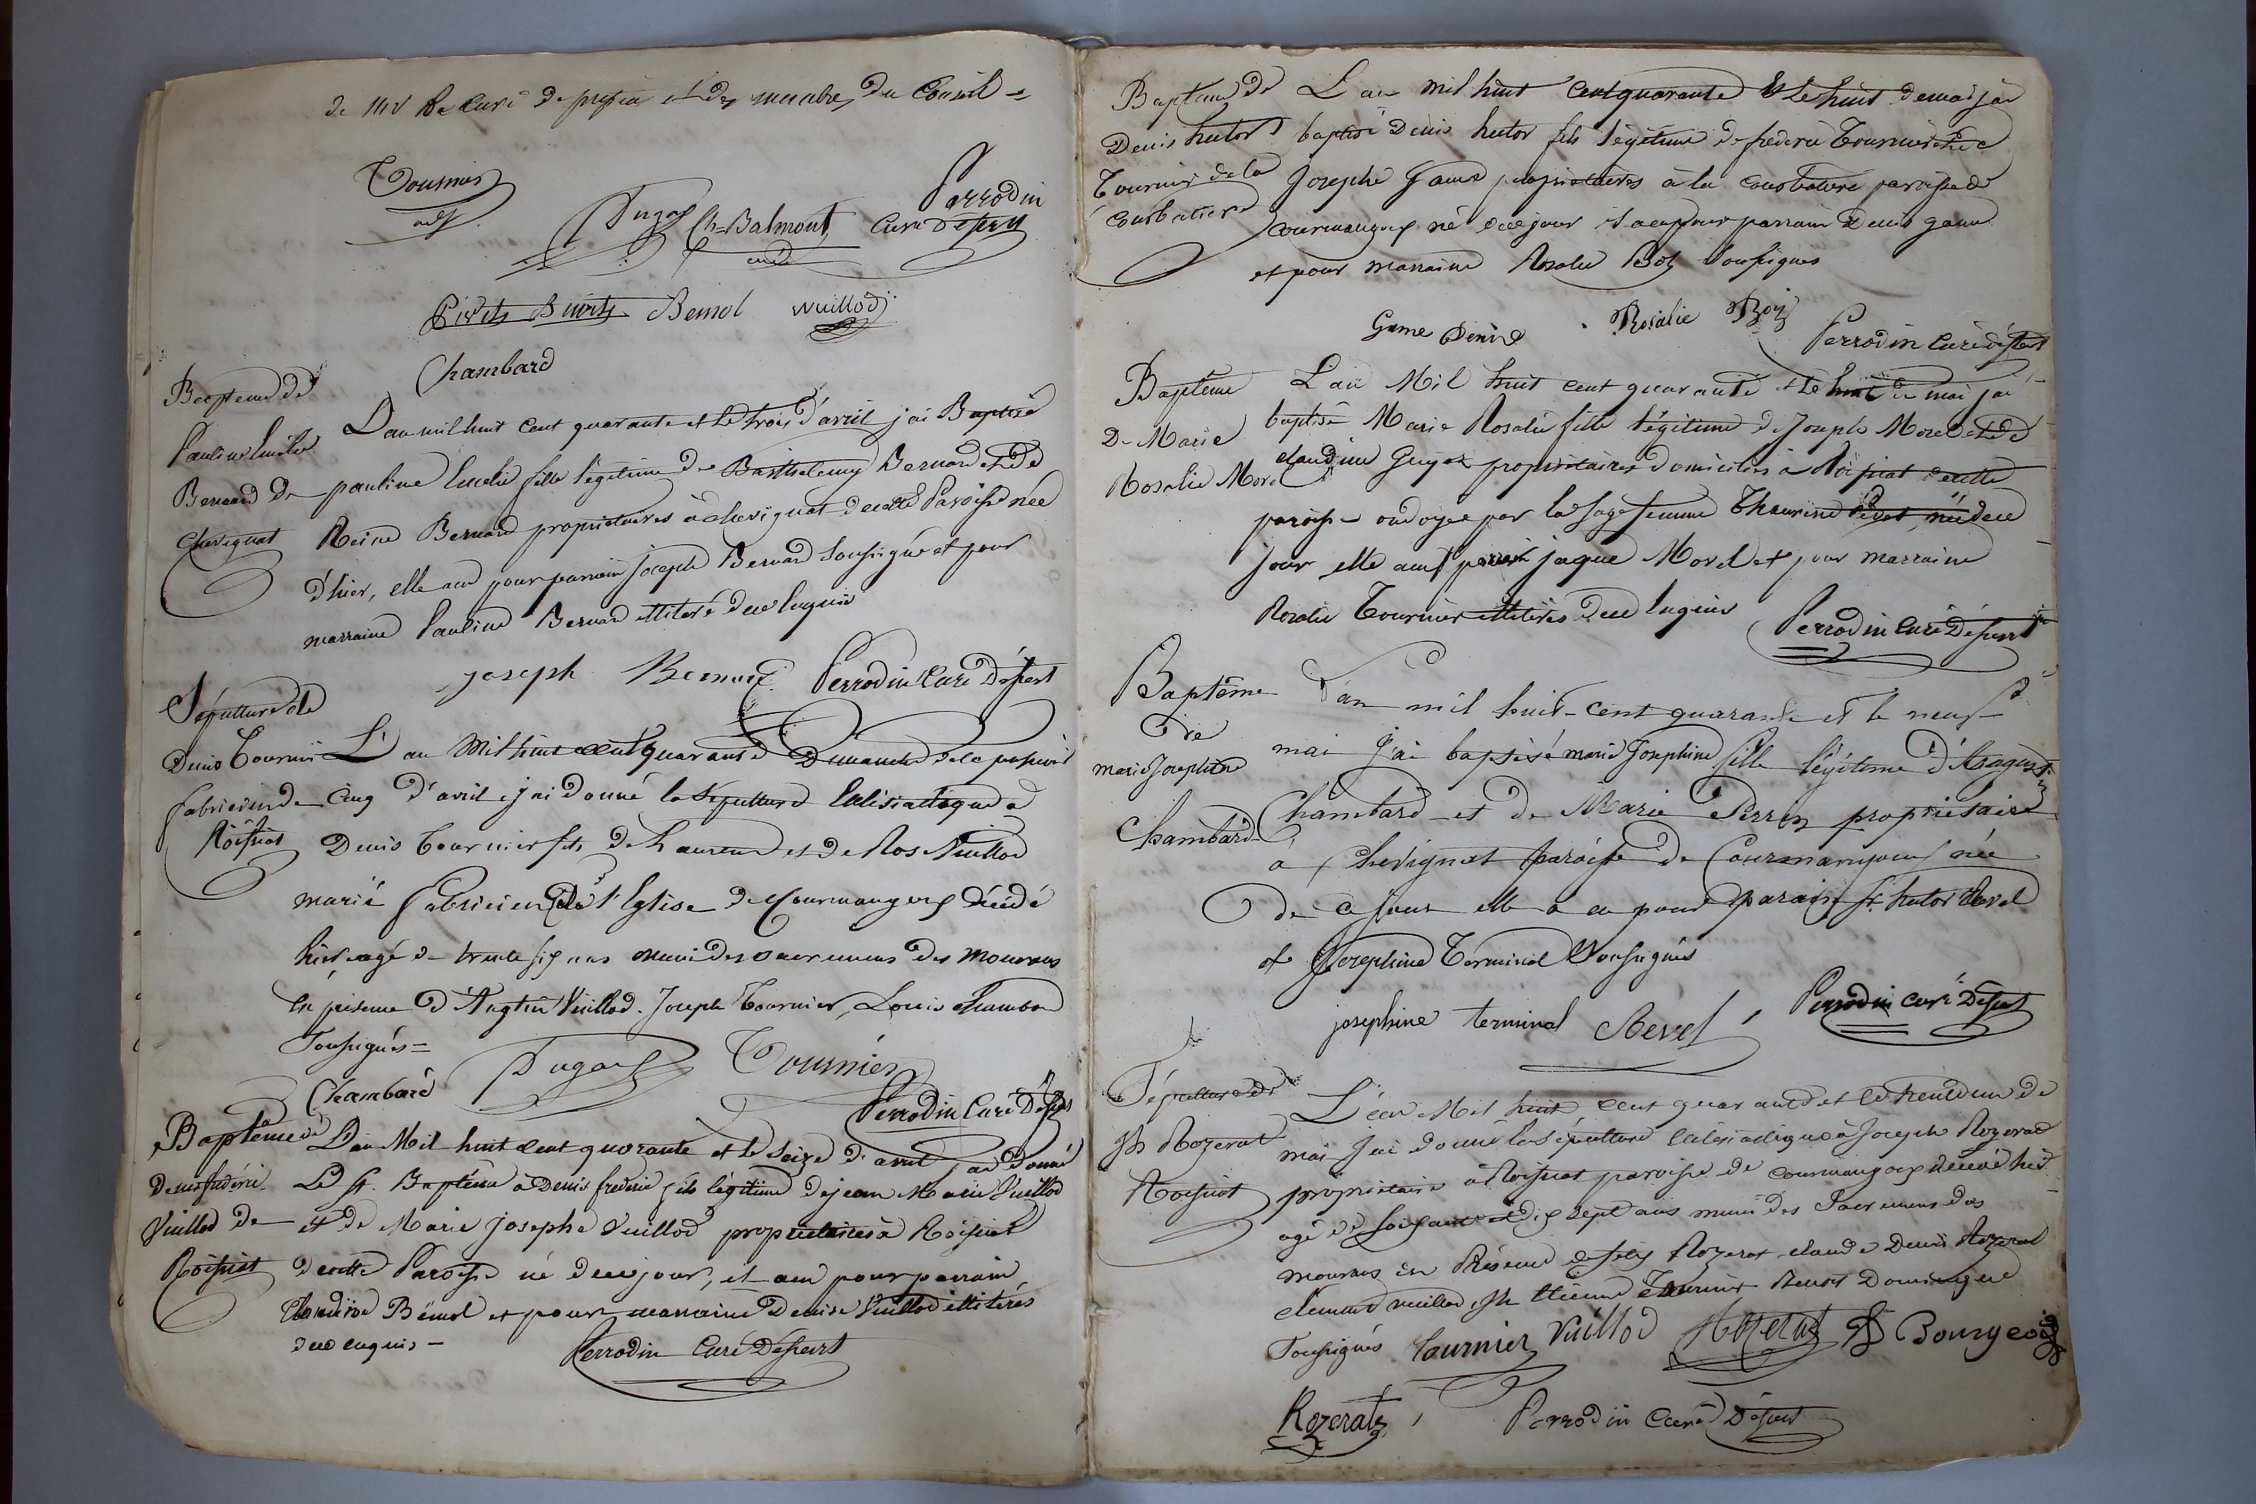 de Mr le Curé de et des membres du Conseil =
Tournier
adj.
Dugas Ch. Balmont Perrodin
curé Curé Désert
Buirets Bemol Vuillod
Chambard
Baptême de
Pauline Lucilie
Bernard de
Chevignat
L'an mil huit cent quarante et le trois d'avril j'ai Baptisé
pauline Lucilie fille légitime de Barthelemy Bernard et de
Reine Bernard propriétaires à Chevignat de cette Paroisse née
d'hier, elle a eu pour parrain joseph Bernard soussigné et pour
marraine Pauline Bernard illiteré de ce enquis
joseph Bernard Perrodin Curé Désert
Sépulture de
Denis Tournier
fabricien de
Roissiat
L'an Mil huit cent quarante Dimanche de la passion
cinq d'avril j'ai donné la sépulture à
Denis Tournier fils de Laurent et de Rose Vuillod
marié fabricien de l'Eglise de Courmangoux décédé
hier agé de trente six ans muni des sacremens des mourans
en présence d'Augtin Vuillod. Joseph Tournier, Louis Chambard
Soussignés =
Chambard Dugas Tournier
Perrodin Curé Désert
Baptême de
Denis fréderic
Vuillod de
Roissiat
L'an Mil huit cent quarante et le seize d'avril j'ai donné
Le St. Baptême à Denis frederic fils légitime de jean Marie Vuillod
et de Marie josephe Vuillod propriétaires à Roissiat
de cette Paroisse né de ce jour, il a eu pour parrain
Bemol et pour marraine Denise Vuillod illiterés
de ce enquis =
Perrodin Curé Désert
Baptême de
Denis hector
Tournier de la
Courbatière
L'an mil huit cent quarante et le huit de mai j'ai
baptisé Denis hector fils légitime de frederic Tournier et de
Josephe Game propriétaires à la Courbatière paroisse de
courmangoux né de ce jour il a eu pour parrain Denis game
et pour marraine Rosalie Boz soussignés
Game Denis Rosalie Boz Perrodin curé désert
Baptême
De Marie
Rosalie Morel
L'an Mil huit cent quarante et le huit de mai j'ai
baptisé Marie Rosalie fille légitime de Joseph Morel et de
claudine Guyot propriétaires domiciliés à Roissiat de cette
paroisse ondoyée par la sage femme Pivet née de ce
jour elle a eu pr parrain jaque Morel et pour marraine
Rosalie Tournier illiterés de ce enquis
Perrodin Curé Désert
Baptême
De
marie Josephine
Chambard
L'an mil huit-cent quarante et le neuf
mai j'ai baptisé marie Josephine fille légitime d'Augustin
Chambard et de Marie Perrin propriétaire
à Chevignat paroisse de Courmangoux née
de ce jour elle a eu pour parain St. hector Revel
et Josephine Terminal Soussignés
josephine terminal Revel Perrodin curé Désert
Sépulture de
Jh Rozerat
Roissiat
L'an Mil huit cent quarante et le trente un de
mai j'ai donné la sépulture à Joseph Rozerat
propriétaire à Roissiat paroisse de courmangoux décédé hier
agé de soixante et dix sept ans muni des Sacremens des
mourans en Présence de félix Rozerat claude Denis Rozerat
clement vuillod, Jh Etienne Tournier Benoit Dominique
Soussignés Tournier Vuillod Rozerat Bourgeois
Rozerat Perrodin Curé Désert